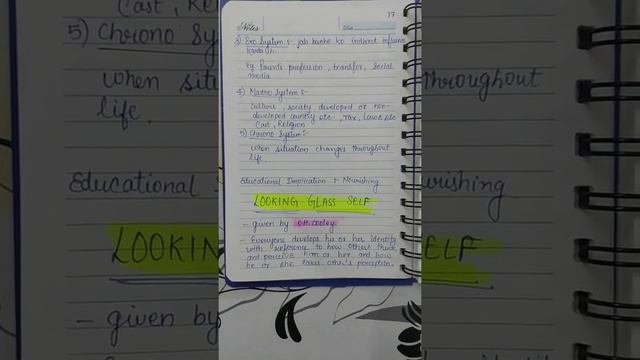 17
Notes
Date
3) Exo System :- job bache ko indirect influence
karta h.
Eg. Parents profession, transfer, social
media
4) Macro System :-
Culture, society developed or non-
developed country etc., Tax, Laws etc
Cast, Religion
5) Chrono System :-
When situation changes throughout
life.
Educational Implication :- Nourishing
LOOKING GLASS SELF
- given by C.H. Cooley
Everyone develops his or her identity
with reference to how others think
and perceive him or her and how
he or she takes other's perception.